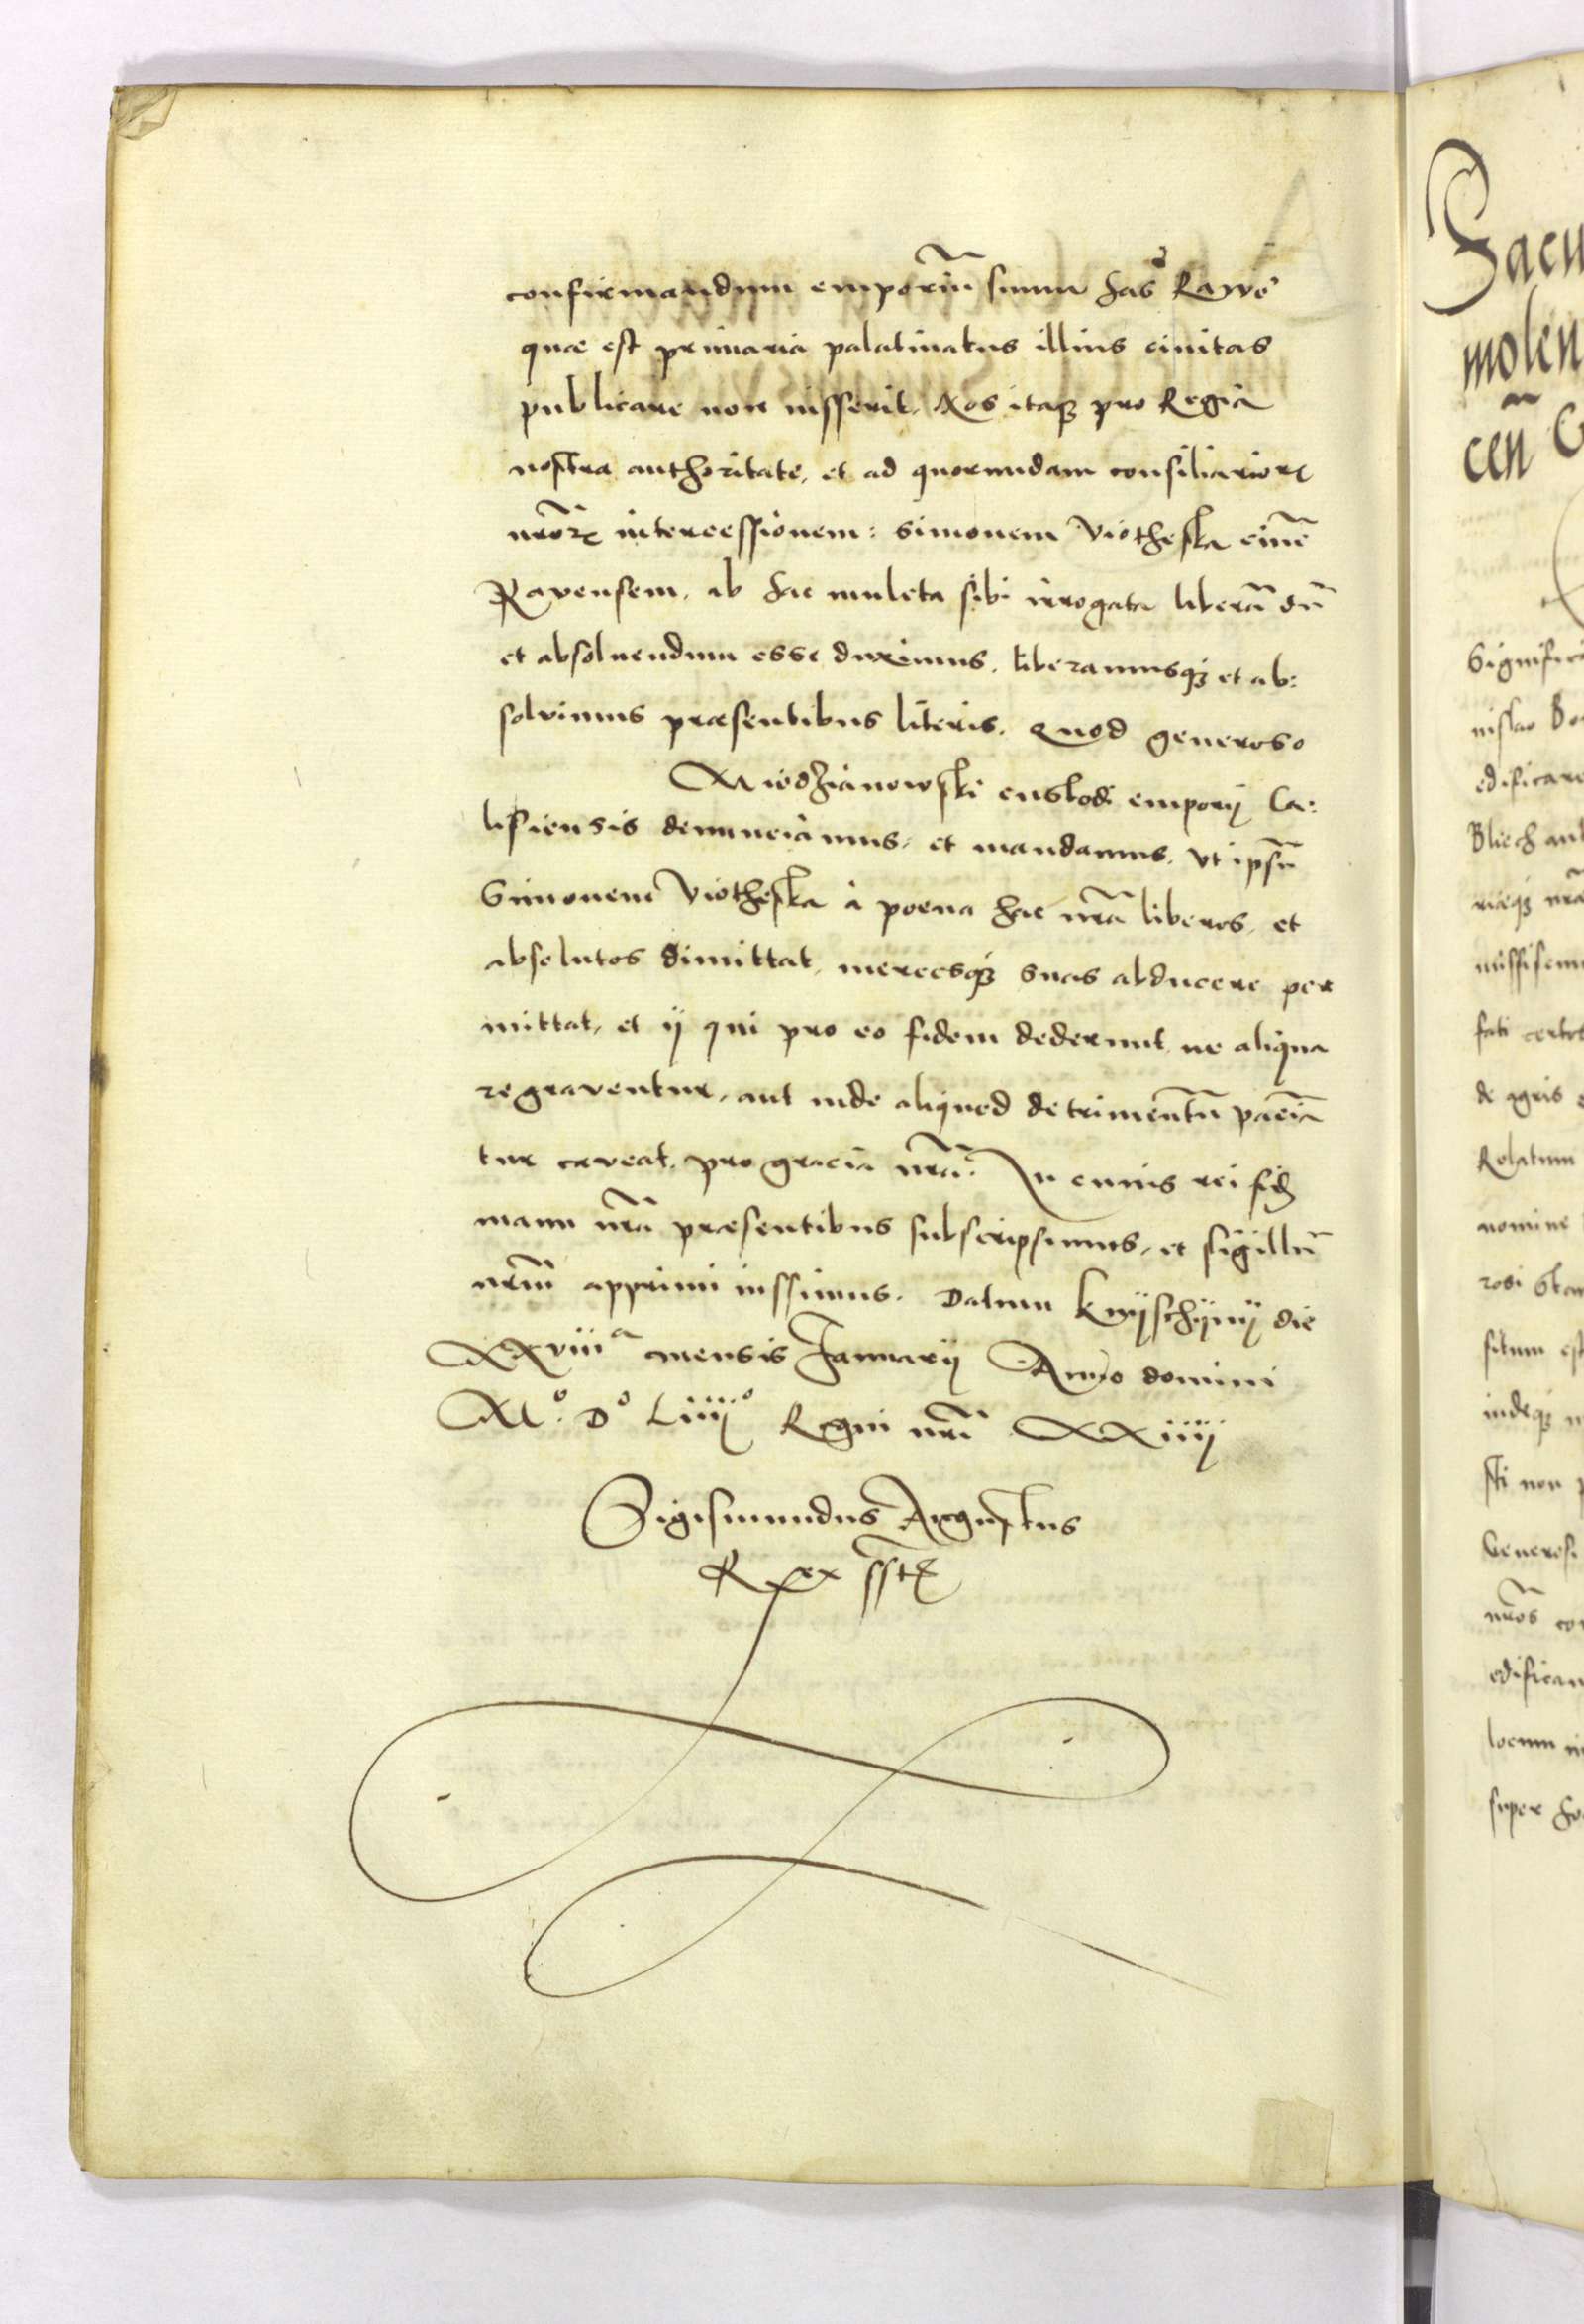 confirmandum emporiũ suum has Rawe
quae est primaria palatinatus illius ciuitas
publicare non iusserit. Nos itaq₃ pro Regia
nostra authoritate, et ad quorundam consiliarioꝝ
nr̃oꝝ intercessionem: Simonem Viotheska ciuẽ
Ravensem, ab hac mulcta sibi irrogata liberãdũ
et absoluendum esse duximus. liberamusq₃ et ab:
solvimus praesentibus literis. Quod generoso
Miodzianowski custodi emporij Ca:
lisiensis denunciamus, et mandamus, vt ipsũ
Simonem Viotheska à poena hac nr̃a liberos, et
absolutos dimittat, mercesq₃ suas abducere per
mittat, et ij qui pro eo fidem dederunt ne aliqua
re graventur, aut inde aliquod detrimentũ pacia
tur caveat. pro gracia nr̃a. In cuius rei fidẽ
manu nr̃a praesentibus subscripsimus, et sigillũ
nrm̃ apprimi iussimus. Datum Knijschijnij die
XXviiiª mensis Januarij Anno domini
M° D° Liiij° Regni nr̃i XXiiij
Sigismundus Augustus
Rex sst
Sacu
molen
ceñ G
Signifi
nislao Bo
edificare
Bliech
riaeq₃ nr̃a
missisem
fati certos
de agris
Relatum
nomine
rosi Sta
situm est
indeq₃
sti non p
Generosi
nr̃os co
edifican
locum in
super ho